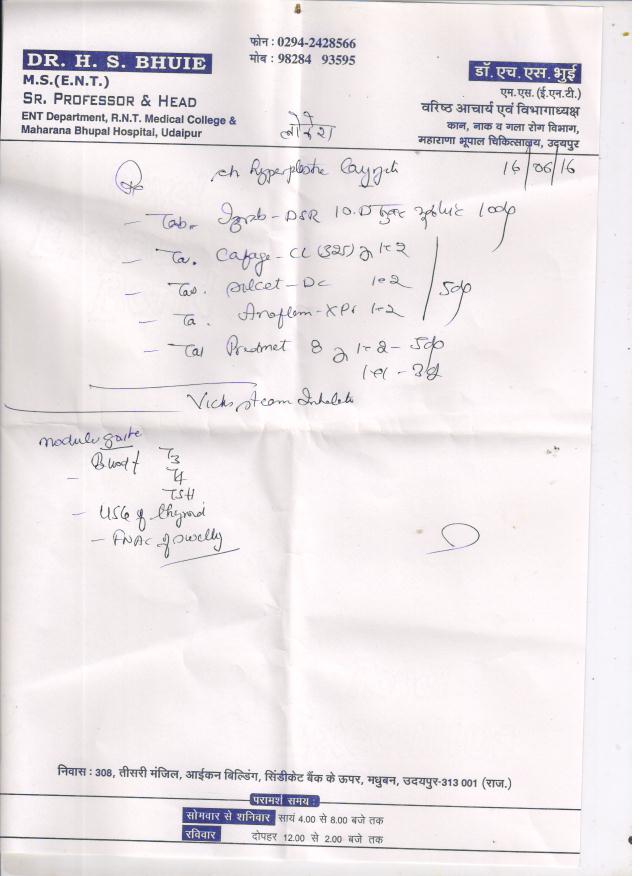 फोन : 0294-2428566
मोब : 98284 93595
DR. H. S. BHUIE
M.S.(E.N.T.)
SR. PROFESSOR & HEAD
ENT Department, R.N.T. Medical College &
Maharana Bhupal Hospital, Udaipur
डॉ. एच. एस. भुई
एम. एस. (ई.एन.टी.)
वरिष्ठ आचार्य एवं विभागाध्यक्ष
कान, नाक व गला रोग विभाग,
महाराणा भूपाल चिकित्सालय, उदयपुर
लोकेश
16/06/16
ch hyperplastic
- Tab. - DSR 10
- Ta. - CL (325) 1-2
- Tab. - DC 1-2
- Ta. Anaflam - XP 1-2
5d
- Tab Predmet 8 1-2 - 5d
Vicks steam Inhale
Blood T3
T4
TSH
- USG of thyroid
- FNAC of swelling
निवास : 308, तीसरी मंजिल, आईकन बिल्डिंग, सिंडीकेट बैंक के ऊपर, मधुबन, उदयपुर-313 001 (राज.)
परामर्श समय :
सोमवार से शनिवार सायं 4.00 से 8.00 बजे तक
रविवार दोपहर 12.00 से 2.00 बजे तक